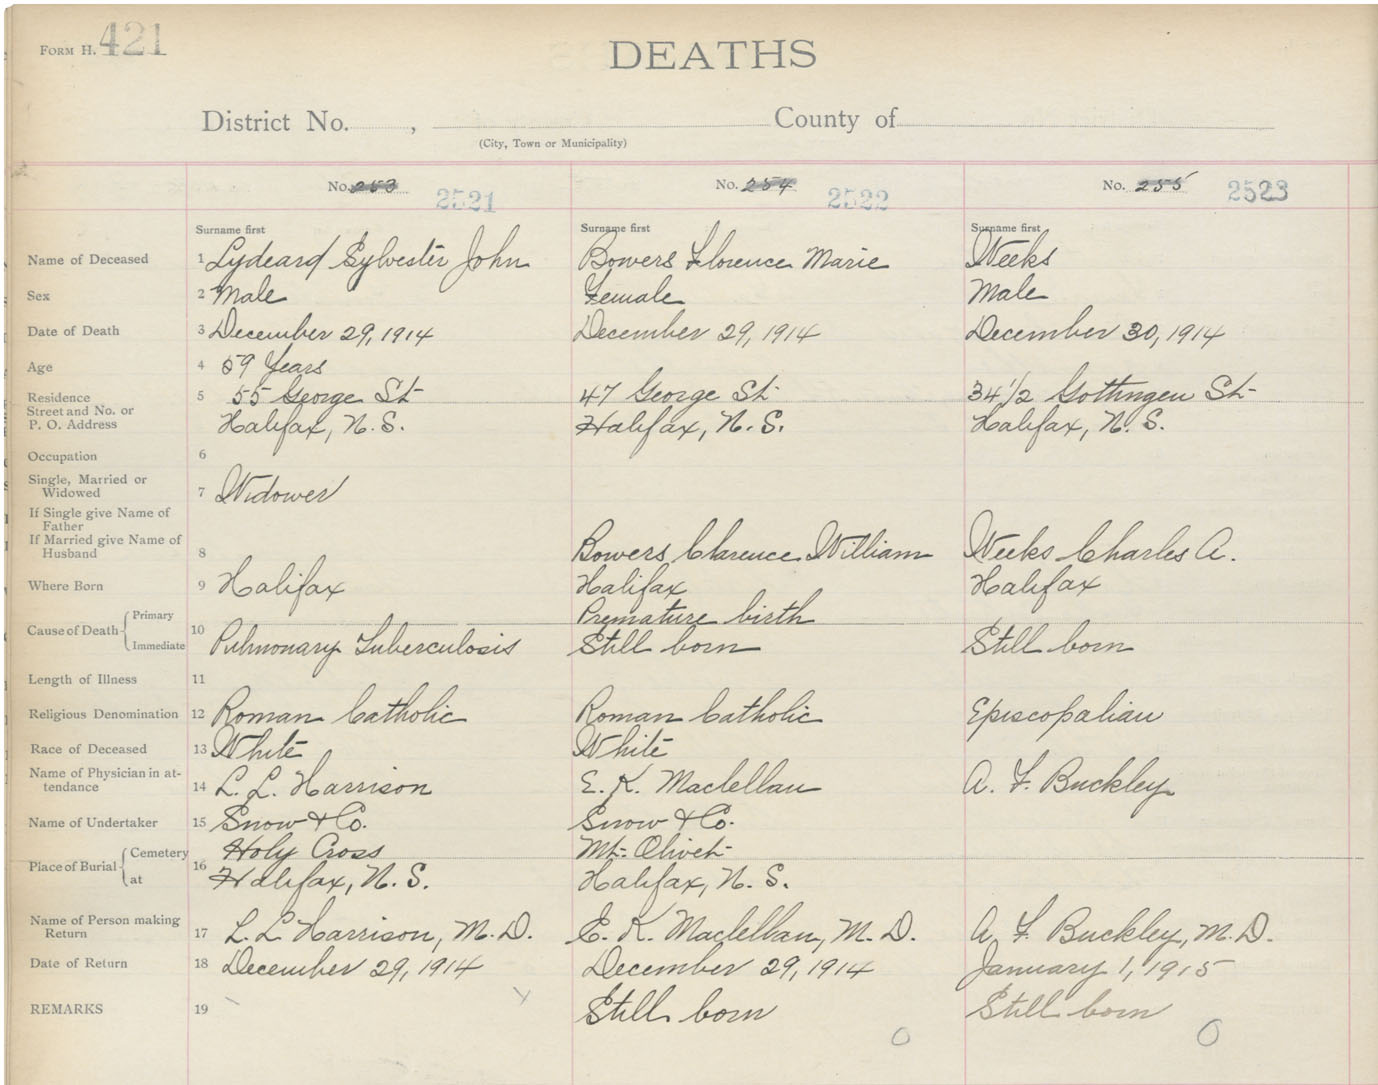 FORM H. 421
DEATHS
District No. , County of
(City, Town or Municipality)
No. 253 2521
No. 254 2522
No. 255 2523
Surname first Surname first Surname first
Name of Deceased 1 Lydeard Sylvester John Bowers Florence Marie Weeks
Sex 2 Male Female Male
Date of Death 3 December 29, 1914 December 29, 1914 December 30, 1914
Age 4 59 Years
Residence 5 55 George St 47 George St 34 1/2 Gottingen St
Street and No. or
P. O. Address Halifax, N.S. Halifax, N.S. Halifax, N.S.
Occupation 6
Single, Married or
Widowed 7 Widower
If Single give Name of
Father
If Married give Name of
Husband 8 Bowers Clarence William Weeks Charles A.
Where Born 9 Halifax Halifax Halifax
Cause of Death Primary Premature birth
Immediate 10 Pulmonary Tuberculosis Still born Still born
Length of Illness 11
Religious Denomination 12 Roman Catholic Roman Catholic Episcopalian
Race of Deceased 13 White White
Name of Physician in at-
tendance 14 L. L. Harrison E. K. Maclellan A. F. Buckley
Name of Undertaker 15 Snow & Co. Snow & Co.
Place of Burial Cemetery Holy Cross Mt. Olivet
at 16 Halifax, N.S. Halifax, N.S.
Name of Person making
Return 17 L. L. Harrison, M.D. E. K. Maclellan, M.D. A. F. Buckley, M.D.
Date of Return 18 December 29, 1914 December 29, 1914 January 1, 1915
REMARKS 19 Still born Still born